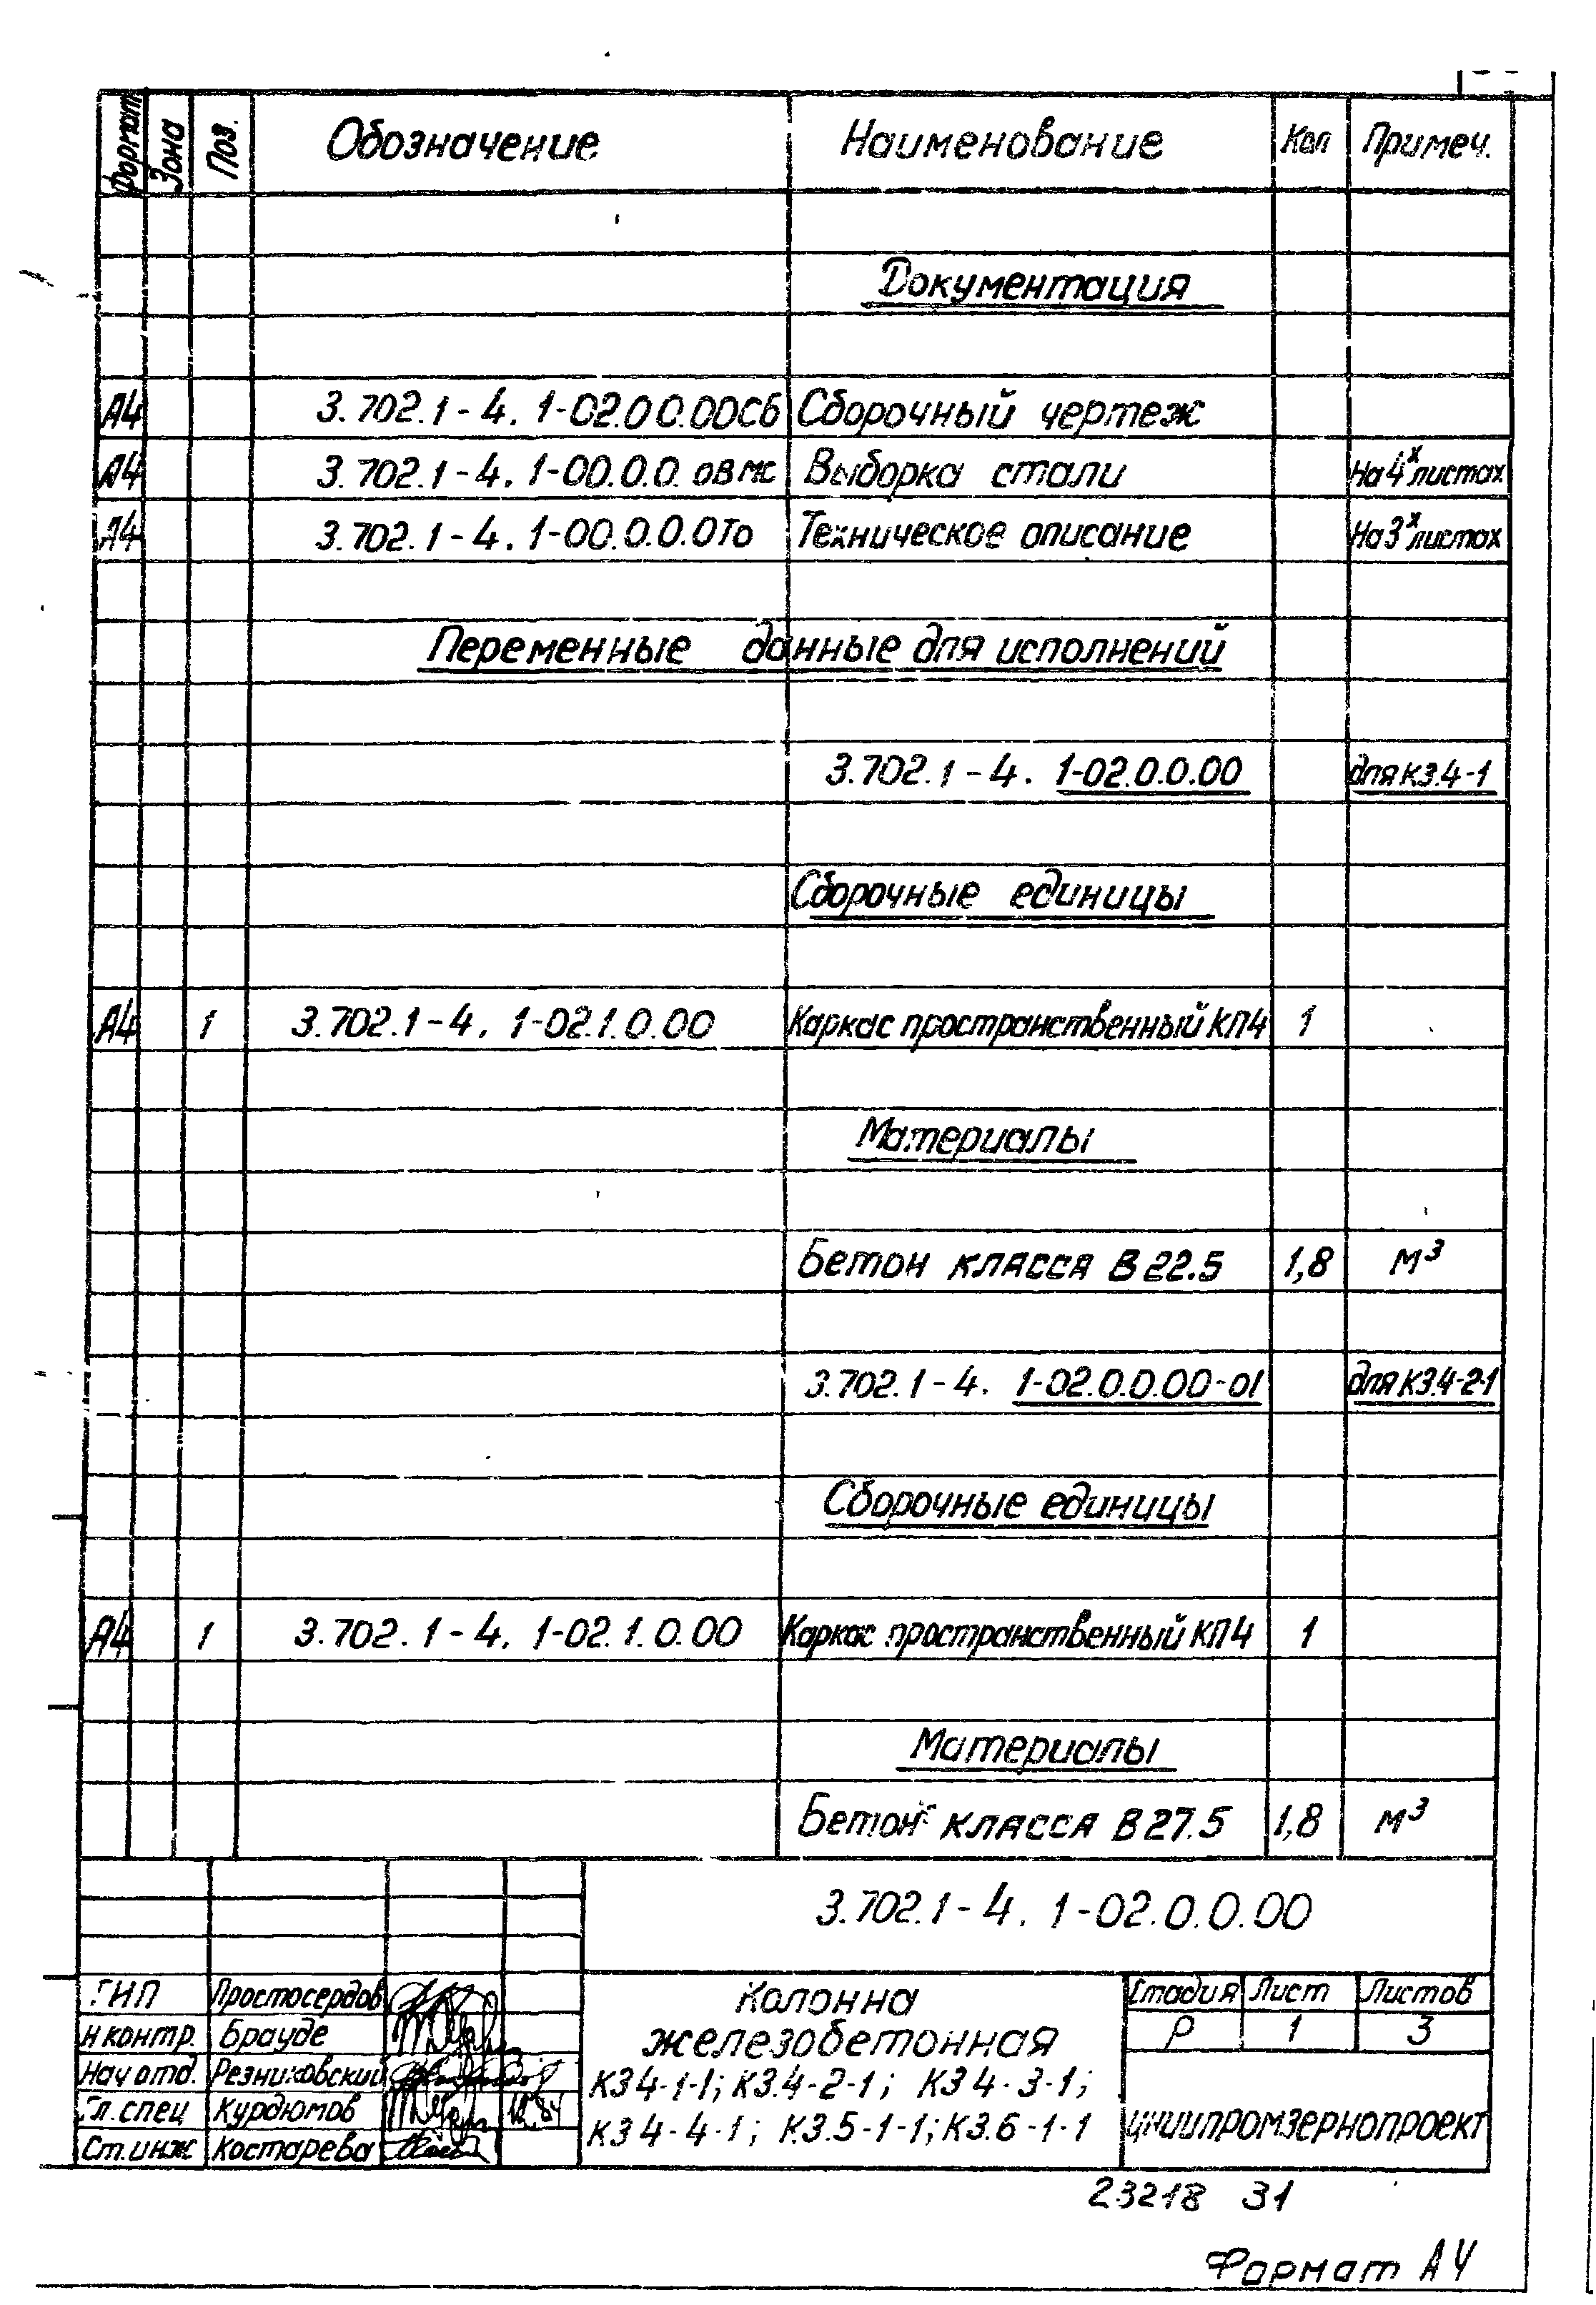 Формат Зона Поз. Обозначение Наименование Кол Примеч.
Документация
А4 3.702.1-4. 1-02.0 0.00Сб Сборочный чертеж
А4 3.702.1-4. 1-00.0.0.0ВМС Выборка стали На 4х листах
А4 3.702.1-4. 1-00.0.0.0То Техническое описание На 3х листах
Переменные данные для исполнений
3.702.1-4. 1-02.0.0.00 для К3.4-1
Сборочные единицы
А4 1 3.702.1-4. 1-02.1.0.00 Каркас пространственный КП4 1
Материалы
Бетон класса В 22.5 1,8 м³
3.702.1-4. 1-02.0.0.00-01 для К3.4-2-1
Сборочные единицы
А4 1 3.702.1-4. 1-02.1.0.00 Каркас пространственный КП4 1
Материалы
Бетон класса В 27.5 1,8 м³
3.702.1-4. 1-02.0.0.00
ГИП Простосердов
Н контр. Брауде
Нач отд. Резниковский
Гл.спец Курдюмов
Ст.инж Костарева
Колонна
железобетонная
К3 4-1-1; К3.4-2-1; К3 4-3-1;
К3 4-4-1; К3.5-1-1; К3.6-1-1
Стадия Лист Листов
Р 1 3
ЦНИИПРОМЗЕРНОПРОЕКТ
23218 31
Формат А4